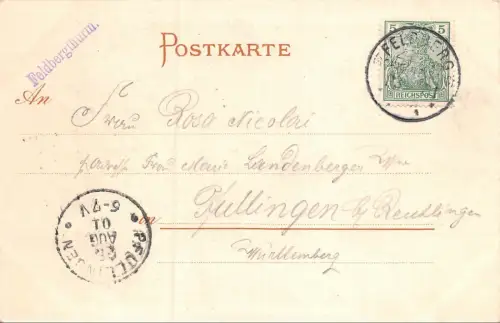 Feldbergthurm.
POSTKARTE
5 5
REICHSPOST
FELDBERG
1
An
Frau Rosa Nicolai
Frau Marie Landenberger Wwe
in Pfullingen b/ Reutlingen
Württemberg
PFULLINGEN
AUG
01
6-7V